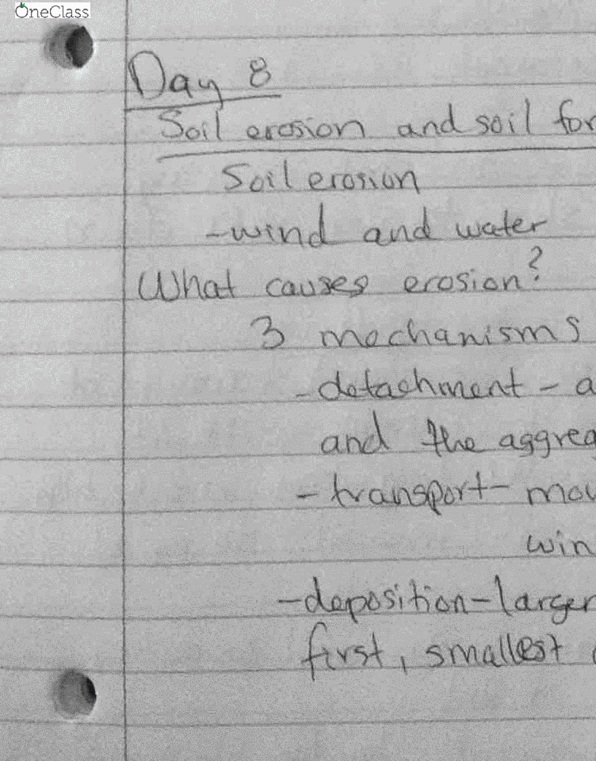 OneClass
Day 8
Soil erosion and soil for
Soil erosion
-wind and water
What causes erosion?
3 mechanisms
-detachment - a
and the aggrea
-transport- mov
win
-deposition-larger
first, smallest